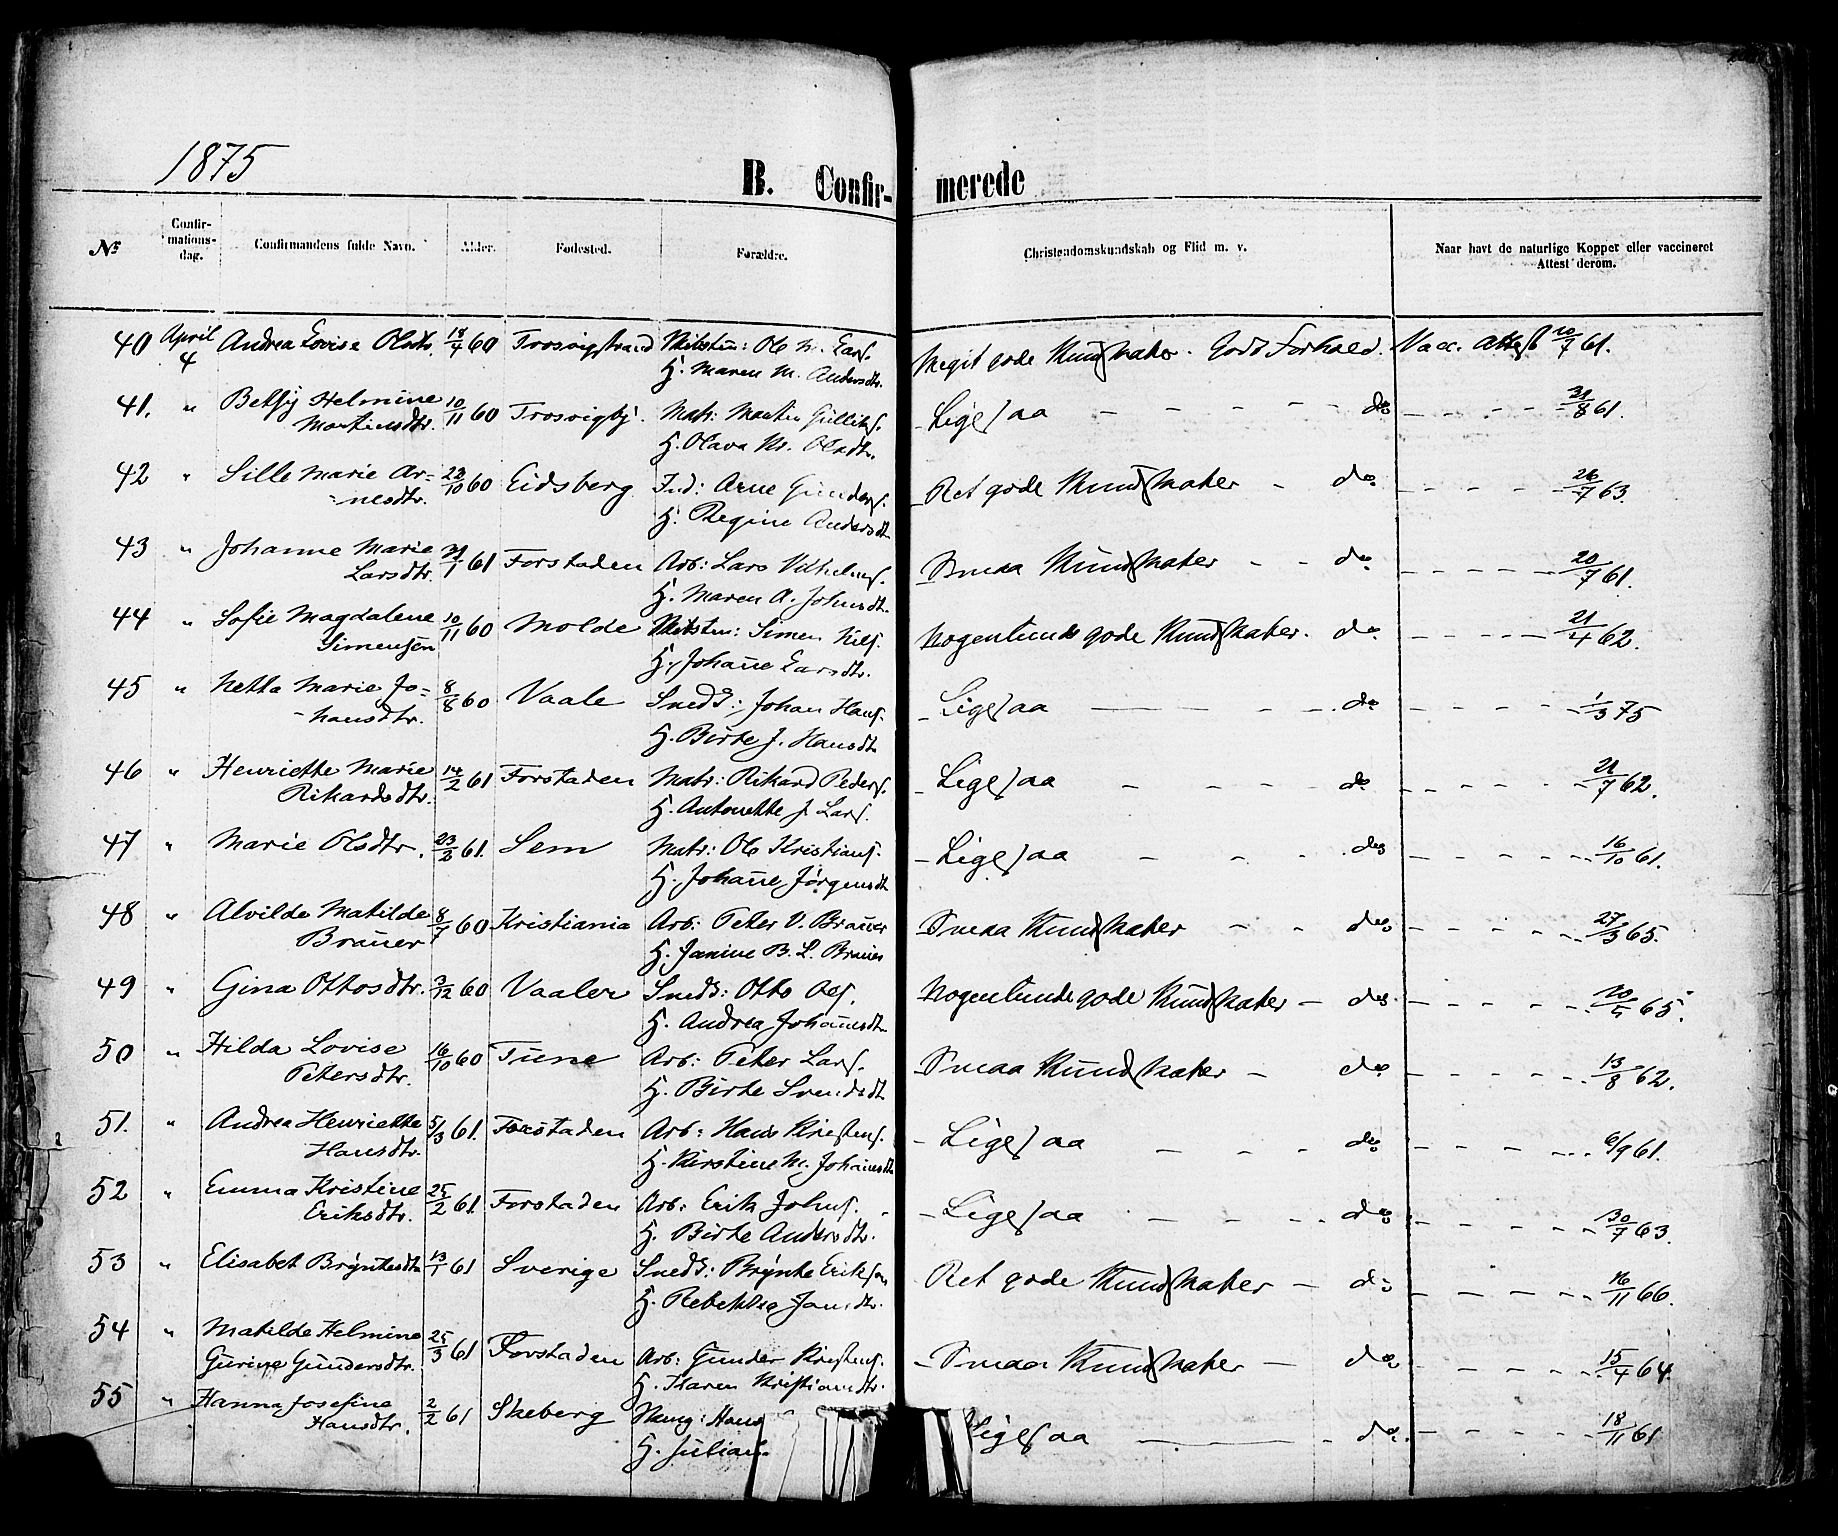 1875
B. Confir-
merede
№
Confir-
mations-
dag.
Confirmandens fulde Navn.
Alder.
Fødested.
Forældre.
Christendomskundskab og Flid m. v.
Naar havt de naturlige Kopper eller vaccineret
Attest derom.
40 April 4 Andrea Lovise Olsdtr. 18/4 60 Trosvigstrand Skibstm: Ole N. Lars.
H. Maren M. Andersdtr.
Meget gode Kundskaber. Godt Forhold. Vacc. Attest 20/7 61.
41. " Betsy Helmine 10/11 60 Trosvigby. Matr: Martin Gulliks.
Martinsdtr. H. Olava Kr. Olsdtr.
Ligesaa do 31/8 61.
42 " Sille Marie Ar- 22/10 60 Eidsberg Ind: Arne Gunders.
-nesdtr. H. Regine Andersdtr
Ret gode Kundskaber do 26/7 63.
43 " Johanne Marie 31/1 61 Forstaden Arb: Lars Vilhelms.
Larsdtr. H. Maren A. Johnsdtr.
Smaa Kundskaber do 20/7 61.
44 " Sofie Magdalene 10/11 60 Molde Skibstm: Simen Nils.
Simensen H. Johane Larsdtr.
Nogenlunde gode Kundskaber. do 21/4 62.
45 " Netta Marie Jo- 8/8 60 Vaale Snedk: Johan Hans.
-hansdtr. H. Birte J. Hansdtr
Ligesaa do 1/3 75
46 " Henriette Marie 14/2 61 Forstaden Matr: Rikard Peders.
Rikardsdtr. H. Antonette J. Lars.
Ligesaa do 21/7 62.
47 " Marie Olsdtr. 23/2 61. Sem Matr: Ole Kristians.
H. Johane Jørgensdtr
Ligesaa do 16/10 61.
48 " Alvilde Matilde 8/7 60 Kristiania Arb: Peter V. Brauer
Brauer H. Janine B. L. Brauer
Smaa Kundskaber do 27/3 65.
49 " Gina Ottosdtr. 3/12 60 Vaaler Snedk: Otto Ols.
H. Andrea Johannsdtr
Nogenlunde gode Kundskaber do 20/5 65.
50 " Hilda Lovise 16/10 60 Tune Arb: Peter Lars.
Petersdtr. H. Birte Svendsdtr
Smaa Kundskaber do 13/8 62.
51. " Andrea Henriette 5/3 61. Forstaden Arb: Hans Kristens.
Hansdtr. H. Kirstine M. Johansdtr
Ligesaa do 6/9 61.
52 " Emma Kristine 25/2 61. Forstaden Arb: Erik Johns.
Eriksdtr. H. Birte Andersdtr.
Ligesaa do 30/7 63.
53 " Elisabet Bryntesdtr 13/1 61 Sverige Snedk: Brynte Erikson
H. Rebekka Jansdtr.
Ret gode Kundskaber do 16/11 66.
54 " Matilde Helmine 25/3 61 Forstaden Arb: Gunder Kristens.
Gurine Gundersdtr. H. Karen Kristiansdtr.
Smaa Kundskaber do 15/4 64.
55 " Hanna Josefine 2/2 61 Skeberg Hans
Hansdtr. H. Julian
Ligesaa do. 18/11 61